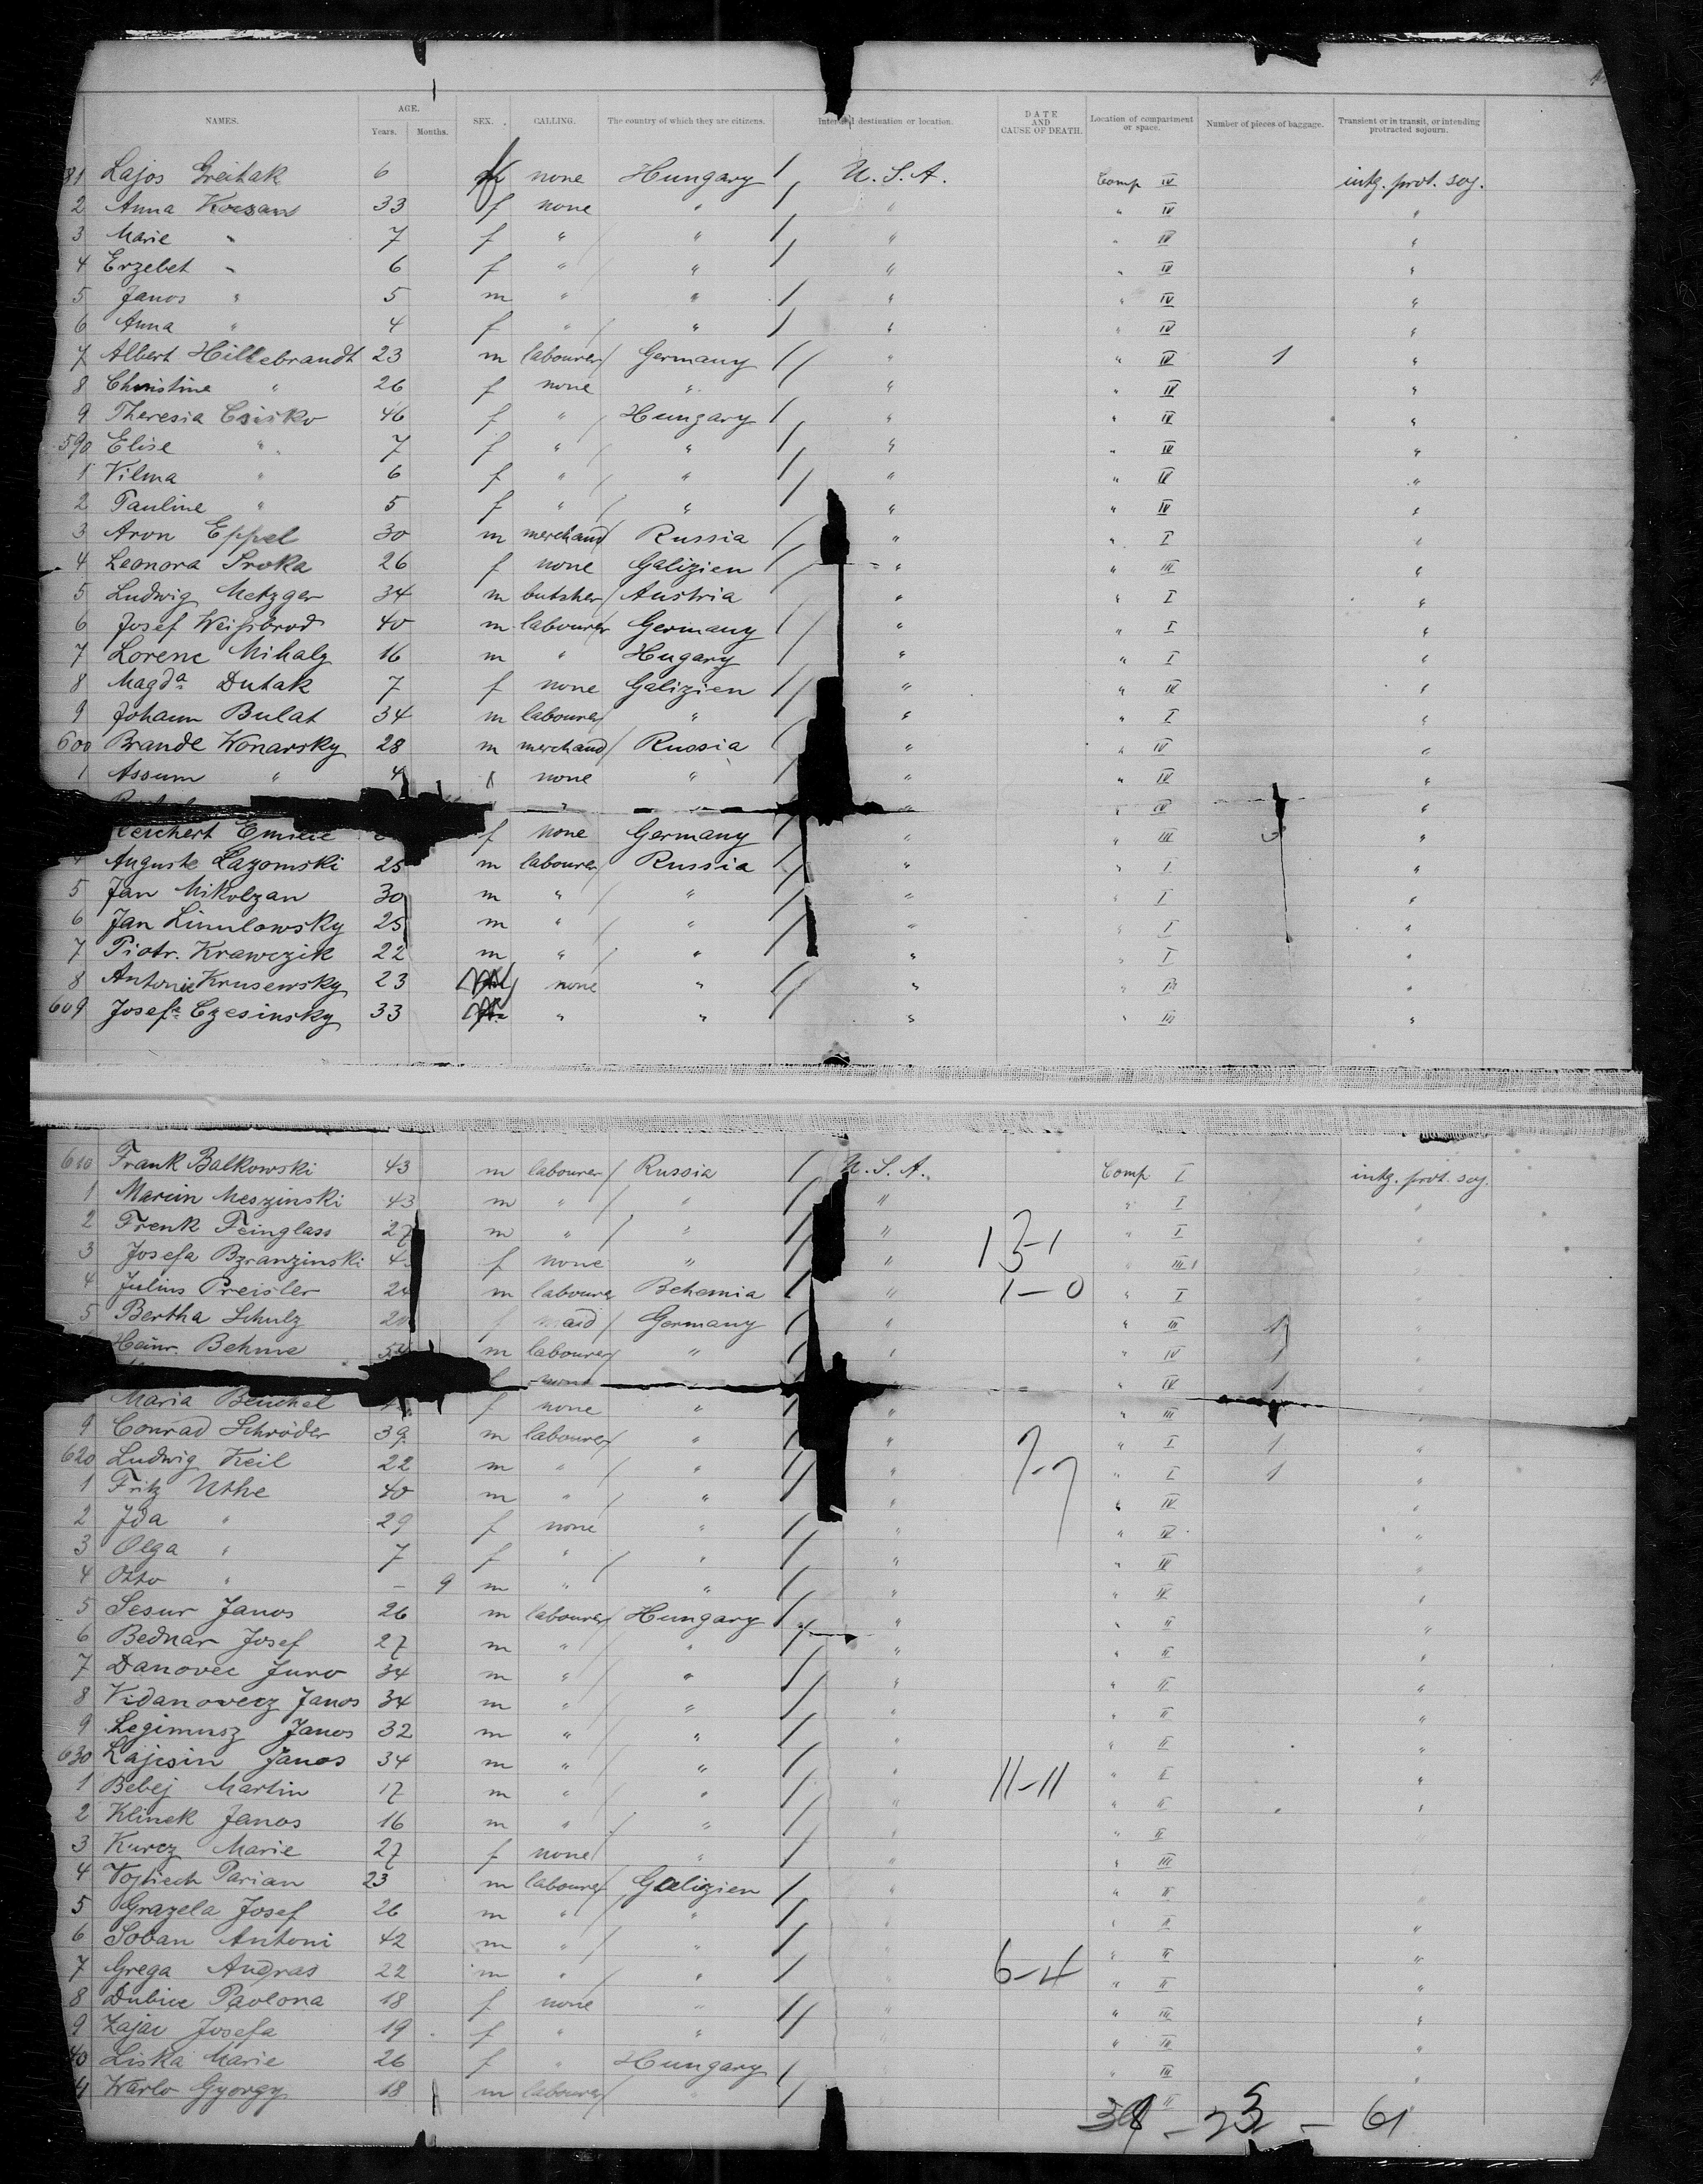 NAMES. AGE. Years. Months. SEX. CALLING. The country of which they are citizens. Intended destination or location. DATE AND CAUSE OF DEATH. Location of compartment or space. Number of pieces of baggage. Transient or in transit, or intending protracted sojourn.
81 Lajos 6 none Hungary U. S. A. Comp IV intg. prot. soj.
2 Anna 33 f none " " " IV "
3 Marie " 7 f " " " " IV "
4 Erzebet " 6 f " " " " IV "
5 Janos " 5 m " " " " IV "
6 Anna " 4 f " " " " IV "
7 Albert Hillebrandt 23 m labourer Germany " " IV 1 "
8 Christine " 26 f none " " " IV "
9 Theresia Csisko 46 f " Hungary " " IV "
590 Elise " 7 f " " " " IV "
1 Vilma " 6 f " " " " IV "
2 Pauline " 5 f " " " " IV "
3 Aron Eppel 30 m merchand Russia " " I "
4 Leonora Sroka 26 f none Galizien " " III "
5 Ludwig Metzger 34 m butsher Austria " " I "
6 Josef Weißbrod 40 m labourer Germany " " I "
7 Lorenc Mihaly 16 m " Hugary " " I "
8 Magda Dutak 7 f none Galizien " " IV "
9 Johann Bulat 34 m labourer " " " I "
600 Brande Wonarsky 28 m merchand Russia " " IV "
1 Assum " 4 none " " " IV "
" " " IV "
Emilie f none Germany " " III "
4 Auguste Lazomski 25 m labourer Russia " " I "
5 Jan Mikolzan 30 m " " " " I "
6 Jan 25 m " " " " I "
7 Piotr. Krawczik 22 m " " " " I "
8 Antonie Krusewsky 23 none " " " III "
609 Josefa Czesinsky 33 " " " " III "
610 Frank Balkowski 43 m labourer Russia U. S. A. Comp I intg. prot. soj.
1 Marcin Meszinski 43 m " " " " I "
2 Frenk Feinglass 27 m " " " 13-1 " I "
3 Josefa Bzranzinski f none " " " III "
4 Julius Preisler m labourer Behemia " 1-0 " I "
5 Bertha Schulz f maid Germany " " III 1 "
Heinr. Behme m labourer " " " IV 1 "
none " " " IV 1
Maria f none " " " III "
9 Conrad Schröder 39 m labourer " " " I 1 "
620 Ludwig Keil 22 m " " " 7-7 " I 1 "
1 Fritz Uthe 40 m " " " " IV "
2 Ida " 29 f none " " " IV "
3 Olga " 7 f " " " " IV "
4 Otto " - 9 m " " " " IV "
5 Sesur Janos 26 m labourer Hungary " " II "
6 Bednar Josef 27 m " " " " II "
7 Danovec Juro 34 m " " " " II "
8 Vidanovecz Janos 34 m " " " " II "
9 Legimusz Janos 32 m " " " " II "
630 Lajcsin Janos 34 m " " " " II "
1 Bebej Martin 17 m " " " 11-11 " II "
2 Klinek Janos 16 m " " " " II "
3 Kurcz Marie 27 f none " " " III
4 Vojtiech Parian 23 m labourer Galizien " " II "
5 Grazela Josef 26 m " " " " II "
6 Soban Antoni 42 m " " " " II "
7 Grega Andras 22 m " " " 6-4 " II "
8 Dubiec Pavlona 18 f none " " " III "
9 Zajac Josefa 19 f " " " " III "
40 Liska Marie 26 f " Hungary " III "
41 Warlo Gyorgy 18 m labourer " " II "
38 - 23 - 61